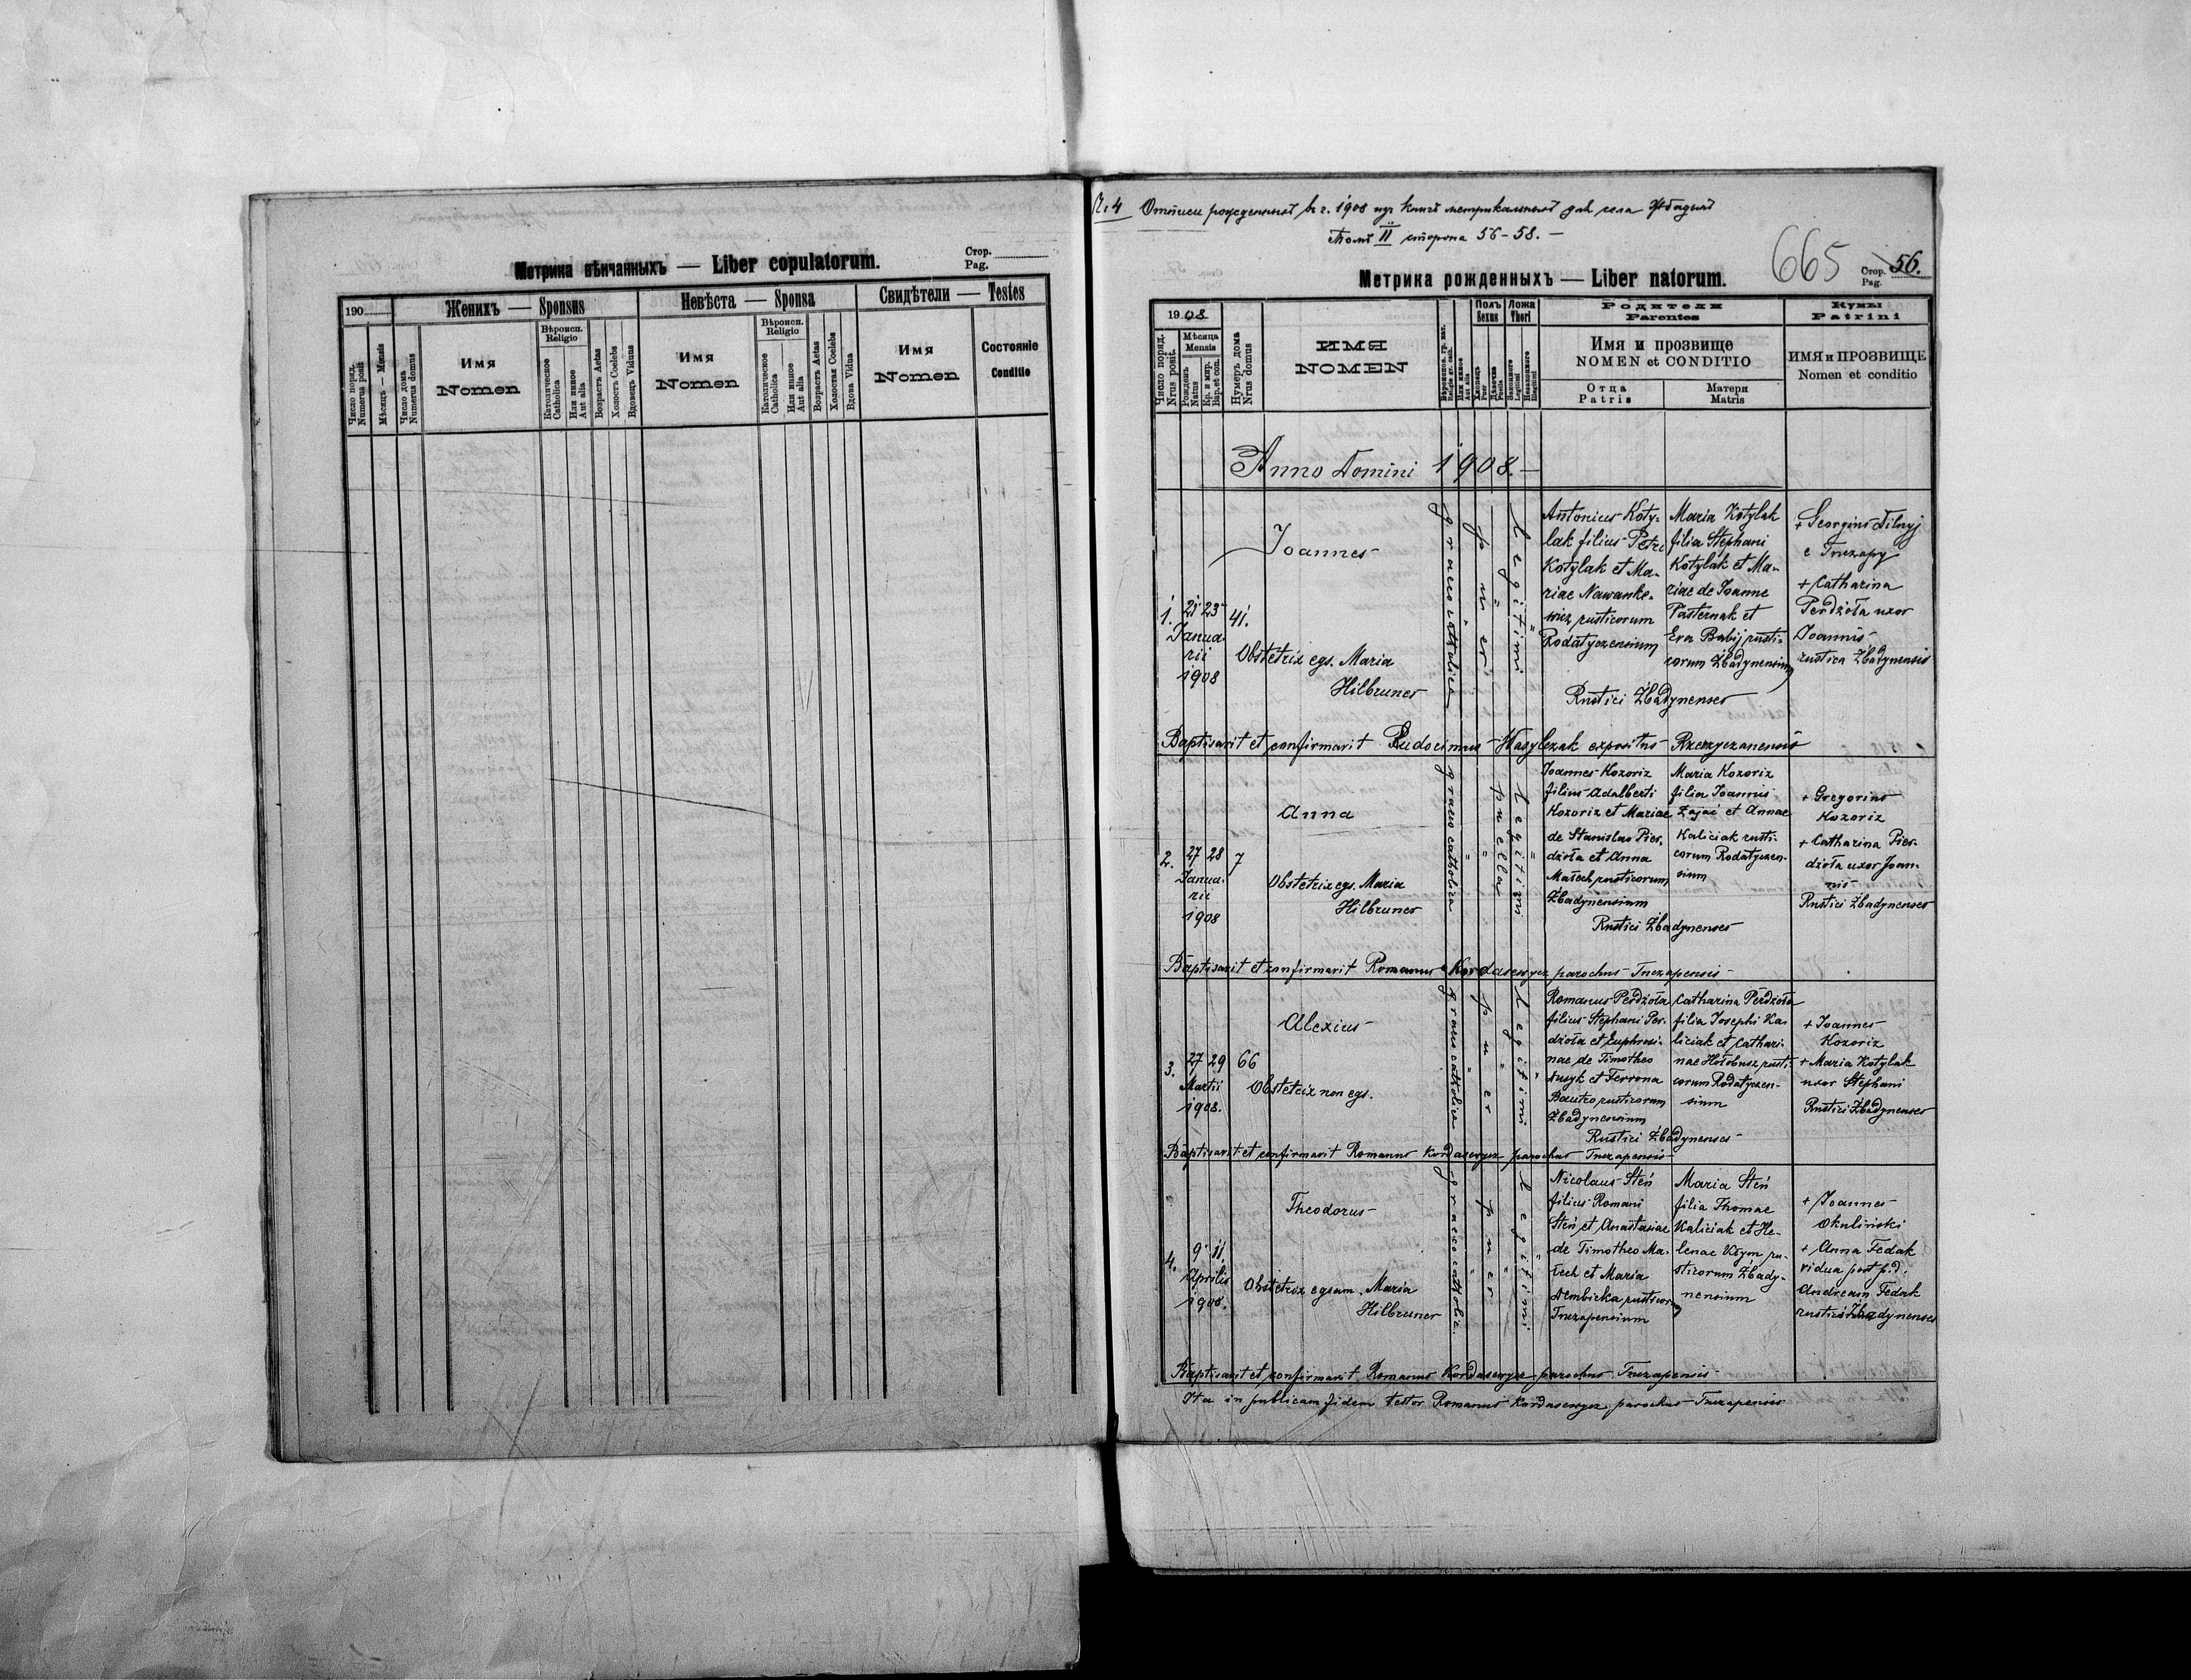 Метрика вѣнчанныхъ — Liber copulatorum.
Стор.
Pag.
190
Женихъ — Sponsus
Невѣста — Sponsa
Свидѣтели — Testes
Число поряд.
Numerus posit
Мѣсяць — Mensis
Число дома
Numerus domus
Имя
Nomen
Вѣроисп.
Religio
Католическое
Catholica
Или инное
Aut alia
Возрастъ Aetas
Холостъ Coelebs
Вдовецъ Viduus
Имя
Nomen
Вѣроисп.
Religio
Католическое
Catholica
Или инное
Aut alia
Возрастъ Aetas
Холостая Coelebs
Вдова Vidua
Имя
Nomen
Состояніе
Conditio
№ 4 Отписи рожденныхъ въ г. 1908 изъ книгъ метрикальныхъ для села
Томъ II сторона 56-58. —
665
Метрика рожденныхъ — Liber natorum.
Стор. 56.
Pag.
1908
Число поряд.
Nrus posit.
Мѣсяца
Mensis
Рожденъ
Natus
Кр. и мир.
Bap. et con.
Нумеръ дома
Nrus domus
ИМЯ
NOMEN
Вѣроиспов. гр. кат.
Religio gr. cath.
Или инное
Aut alia
Полъ
Sexus
Хлопецъ
Puer
Дѣвочка
Puella
Ложа
Thori
Законного
Legitimi
Незаконного
Illegitimi
Родители
Parentes
Имя и прозвище
NOMEN et CONDITIO
Отца
Patris
Матери
Matris
Кумы
Patrini
ИМЯ и ПРОЗВИЩЕ
Nomen et conditio
Anno Domini 1908. —
1. 21 23 41.
Janua-
rii
1908
Joannes
Obstetrix egs. Maria
Hilbruner
graeco catholica
puer
legitimi
Antonius Koty-
lak filius Petri
Kotylak et Ma-
riae Nawanke-
wicz rusticorum
Rodatyczensium
Maria Kotylak
filia Stephani
Kotylak et Ma-
riae de Joanne
Pasternak et
Eva Babij rusti-
corum Żbadynensium
Rustici Żbadynenses
+ Georgius Dilnyj
e Tuczapy
+ Catharina
Perdzioła uxor
Joannis
rustica Żbadynensis
Baptisavit et confirmavit Eudocimus Wasylczak expositus Rzeczyczanensis
2. 27 28 7
Janua-
rii
1908
Anna
Obstetrix egs. Maria
Hilbruner
graeco catholica
puella
legitimi
Joannes Kozoriz
filius Adalberti
Kozoriz et Mariae
de Stanislao Pier-
dzioła et Anna
Małech rusticorum
Żbadynensium
Maria Kozoriz
filia Joannis
Zając et Annae
Kaliciak rusti-
corum Rodatyczen-
sium
Rustici Żbadynenses
+ Gregorius
Kozoriz
+ Catharina Pier-
dzioła uxor Joan-
nis
Rustici Żbadynenses
Baptisavit et confirmavit Romanus Kordasewycz parochus Tuczapensis
3. 27 29 66
Martii
1908.
Alexius
Obstetrix non egs.
graeco catholica
puer
legitimi
Romanus Perdzioła
filius Stephani Per-
dzioła et Euphrosi-
nae de Timotheo
Husyk et Ferrona
Bautro rusticorum
Żbadynensium
Catharina Perdzioła
filia Josephi Ka-
liciak et Cathari-
nae Hołobusz rusti-
corum Rodatyczen-
sium
Rustici Żbadynenses
+ Joannes
Kozoriz
+ Maria Kotylak
uxor Stephani
Rustici Żbadynenses
Baptisavit et confirmavit Romanus Kordasewycz parochus Tuczapensis
4. 9 11.
Aprilis
1908.
Theodorus
Obstetrix egsam. Maria
Hilbruner
graeco catholic.
puer
legitimi
Nicolaus Steń
filius Romani
Steń et Anastasiae
de Timotheo Ma-
łech et Maria
Dembicka rusticorum
Tuczapensium
Maria Steń
filia Thomae
Kaliciak et He-
lenae Kłym ru-
sticorum Żbady-
nensium
+ Joannes
Okuliński
+ Anna Fedak
vidua post p.d.
Andream Fedak
rustici Żbadynenses
Baptisavit et confirmavit Romanus Kordasewycz parochus Tuczapensis
Ita in publicam fidem testor Romanus Kordasewycz parochus Tuczapensis